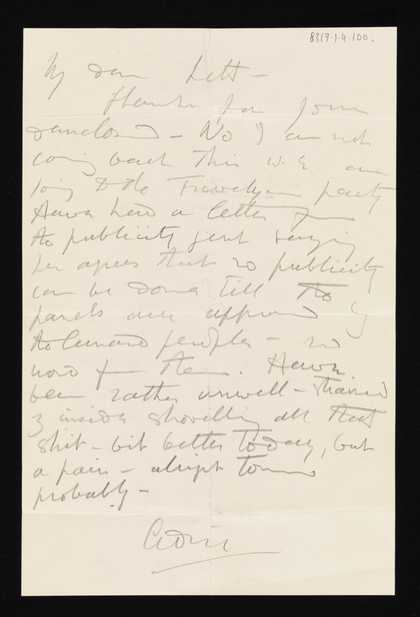 8317.1.4.100.
My dear Lett –
Thanks for your
enclosed – No I am not
coming back this W.E. am
going to the Trevelyan party
Have had a letter from
the publicity gent saying
he agrees that no publicity
can be done till the
panels are approved by
the Cunard people – no
word from them. Have
been rather unwell – strained
my insides shovelling all that
shit – bit better today, but
a pain – alright tomorrow
probably –
Cedric